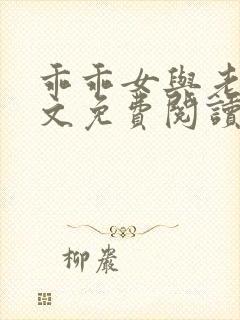 乖乖女與老
文免費閱讀
柳巖